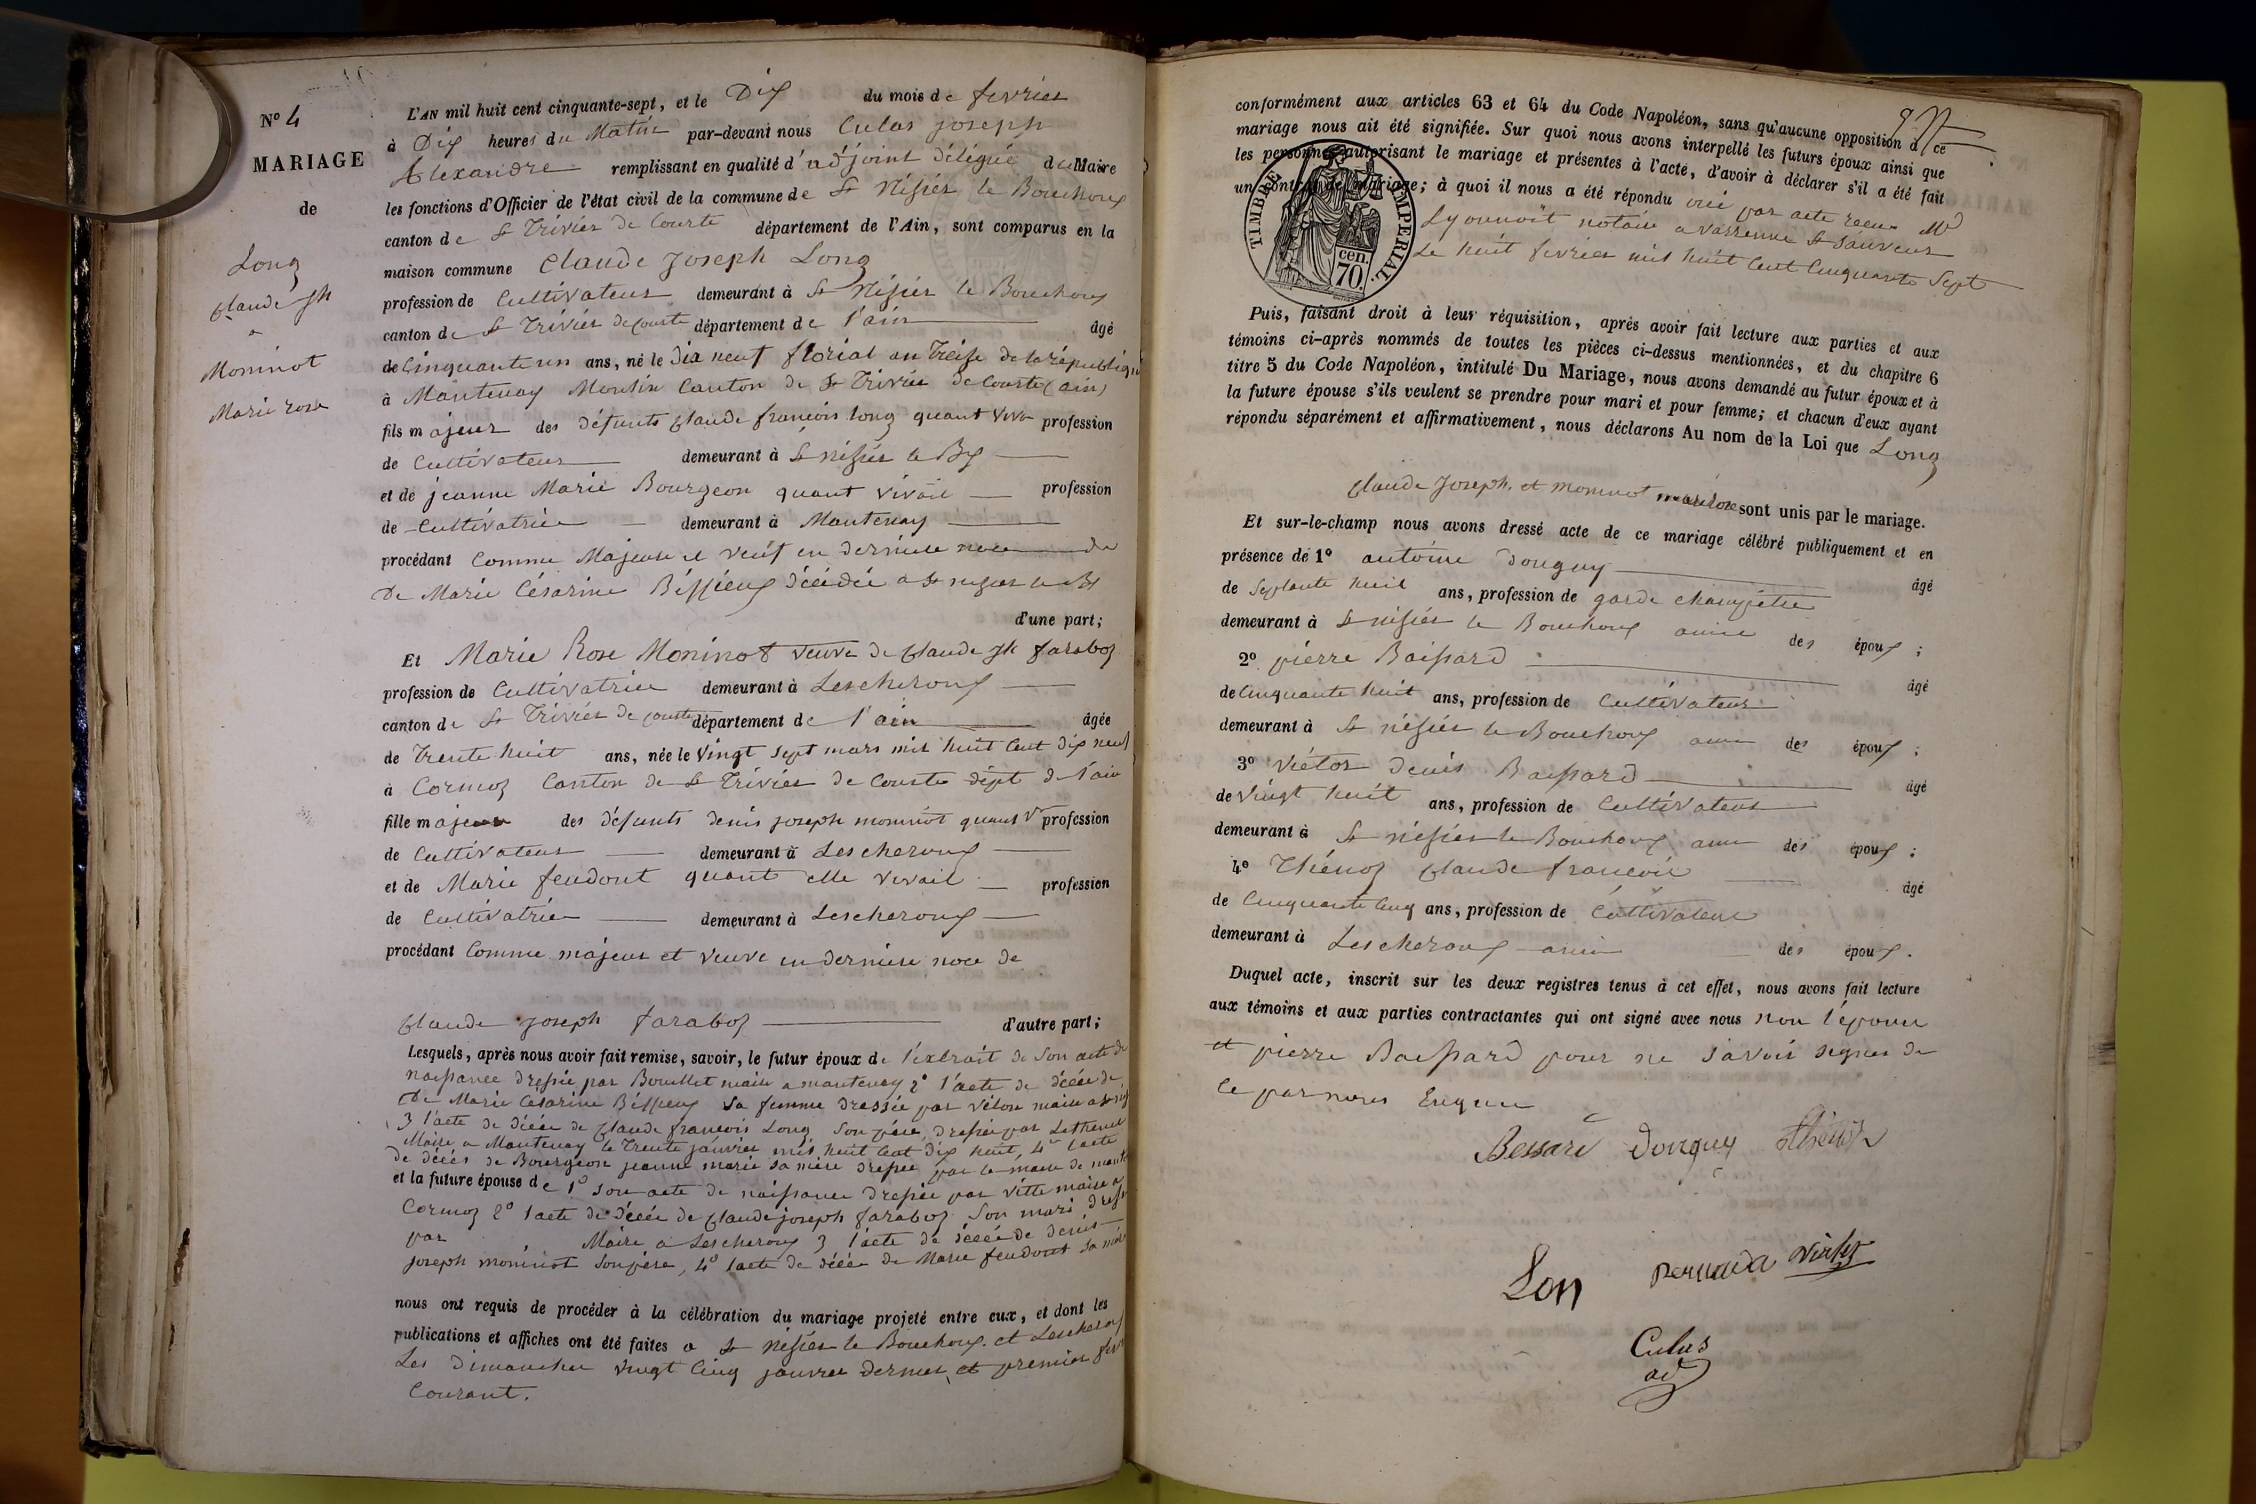 N° 4
MARIAGE
de
Long
Claude Jh
a
Moninot
Marie rose
L'AN mil huit cent cinquante-sept, et le Dix du mois de fevrier
à Dix heures du Matin par-devant nous Culas joseph
Alexandre remplissant en qualité d'adjoint délégué du Maire
les fonctions d'Officier de l'état civil de la commune de St Nisier le Bouchoux
canton de St Trivier de Courte département de l'Ain, sont comparus en la
maison commune Claude Joseph Long
profession de Cultivateur demeurant à St Nisier le Bouchoux
canton de St Trivier de Courte département de l'ain âgé
de Cinquante un ans, né le dix neuf florial an Treise de la républiqu
à Mantenay Montlin Canton de St Trivier de Courte (ain)
fils majeur des défunts Claude francois long quant vivr profession
de Cultivateur demeurant à St nisier le Bx
et de jeanne Marie Bourgeon quant vivait profession
de Cultivatrice demeurant à Mantenay
procédant comme Majeur et veuf en derniere noce de
De Marie Césarine Béssieux décédée a St nizier le Bx
d'une part;
Et Marie Rose Moninot veuve de Claude Jh faraboz
profession de Cultivatrice demeurant à Lescheroux
canton de St Trivier de courte département de l'ain âgée
de Trente huit ans, née le Vingt sept mars mil huit Cent dix neuf
à Cormoz Canton de St Trivier de Courte dépt de l'ain
fille majeur des défunts denis joseph moninot quant vr profession
de Cultivateur demeurant à Lescheroux
et de Marie feudont quant elle vivait profession
de Cultivatrice demeurant à Lescheroux
procédant Comme majeur et veuve en derniere noce de
Claude joseph faraboz d'autre part;
Lesquels, après nous avoir fait remise, savoir, le futur époux de l'extrait de Son acte de
naissance dressée par Bouillet maire a mantenay 2° l'acte de décée de
De Marie Césarine Béssieux sa femme dressée par maire a St
3 l'acte de décée de Claude francois Long Son père dressée par
Maire a Mantenay le Trente janvier mil huit Cent dix huit, 4° l'acte
de décés de Bourgeon jeanne marie sa mère dressée par le maire de
et la future épouse de 1° son acte de naissance dressée par Vitte maire a
Cormoz 2° l'acte de décée de Claude joseph faraboz Son mari
par Maire a Lescheroux 3 l'acte de décée de denis
joseph moninot Son père, 4° l'acte de décée de Marie feudont sa
nous ont requis de procéder à la célébration du mariage projeté entre eux, et dont les
publications et affiches ont été faites a St Nisier le Bouchoux et Lescheroux
Les Dimanches vingt Cinq janvier dernier, et premier
Courant.
conformément aux articles 63 et 64 du Code Napoléon, sans qu'aucune opposition à ce
mariage nous ait été signifiée. Sur quoi nous avons interpellé les futurs époux ainsi que
les personnes autorisant le mariage et présentes à l'acte, d'avoir à déclarer s'il a été fait
un contrat de mariage; à quoi il nous a été répondu oui par acte recu Me
Lyonnoit notaire a Varrenne St Sauveur
Le huit fevrier mil huit Cent Cinquante Sept
TIMBRE IMPERIAL
cen.
70.
Puis, faisant droit à leur réquisition, après avoir fait lecture aux parties et aux
témoins ci-après nommés de toutes les pièces ci-dessus mentionnées, et du chapitre 6
titre 5 du Code Napoléon, intitulé Du Mariage, nous avons demandé au futur époux et à
la future épouse s'ils veulent se prendre pour mari et pour femme; et chacun d'eux ayant
répondu séparément et affirmativement, nous déclarons Au nom de la Loi que Long
Claude Joseph. et moninot marie rose sont unis par le mariage.
Et sur-le-champ nous avons dressé acte de ce mariage célébré publiquement et en
présence de 1° antoine Donguy
de Septante huit ans, profession de garde champetre âgé
demeurant à St nisier le Bouchoux amie des époux ;
2° pierre Baissard
de Cinquante huit ans, profession de Cultivateur âgé
demeurant à St nisier le Bouchoux ami des époux ;
3° Victor denis Baissard
de Vingt huit ans, profession de Cultivateur âgé
demeurant à St nisier le Bouchoux ami des époux ;
4° Thénoz Claude francois
de Cinquante Cinq ans, profession de Cultivateur âgé
demeurant à Lescheroux ami des époux .
Duquel acte, inscrit sur les deux registres tenus à cet effet, nous avons fait lecture
aux témoins et aux parties contractantes qui ont signé avec nous non l'épouse
et pierre Baissard pour ne savoir signer de
ce par nous Enquis
Bessard Donguy Thénoz
Lon
Culas
adj